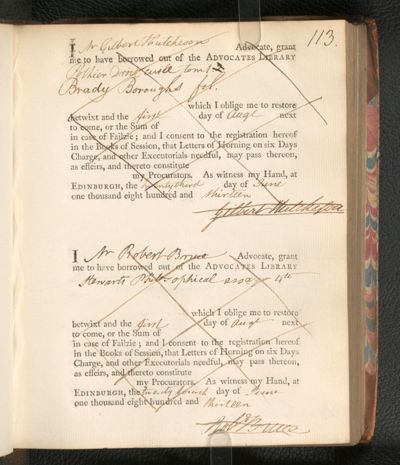 113.
I Mr Gilbert Hutcheson Advocate, grant
me to have borrowed out of the ADVOCATES LIBRARY
Pothier tom 2
Brady Boroughs fol.
which I oblige me to restore
betwixt and the first day of Augt next
to come, or the Sum of
in case of Failzie; and I consent to the registration hereof
in the Books of Session, that Letters of Horning on six Days
Charge, and other Executorials needful, may pass thereon,
as effeirs, and thereto constitute
my Procurators. As witness my Hand, at
EDINBURGH, the twenty third day of June
one thousand eight hundred and thirteen
Gilbert Hutcheson
I Mr Robert Bruce Advocate, grant
me to have borrowed out of the ADVOCATES LIBRARY
Stewarts Philosophical essays 4to
which I oblige me to restore
betwixt and the first day of Augt next
to come, or the Sum of
in case of Failzie; and I consent to the registration hereof
in the Books of Session, that Letters of Horning on six Days
Charge, and other Executorials needful, may pass thereon,
as effeirs, and thereto constitute
my Procurators. As witness my Hand, at
EDINBURGH, the twenty fourth day of June
one thousand eight hundred and thirteen
Robt Bruce